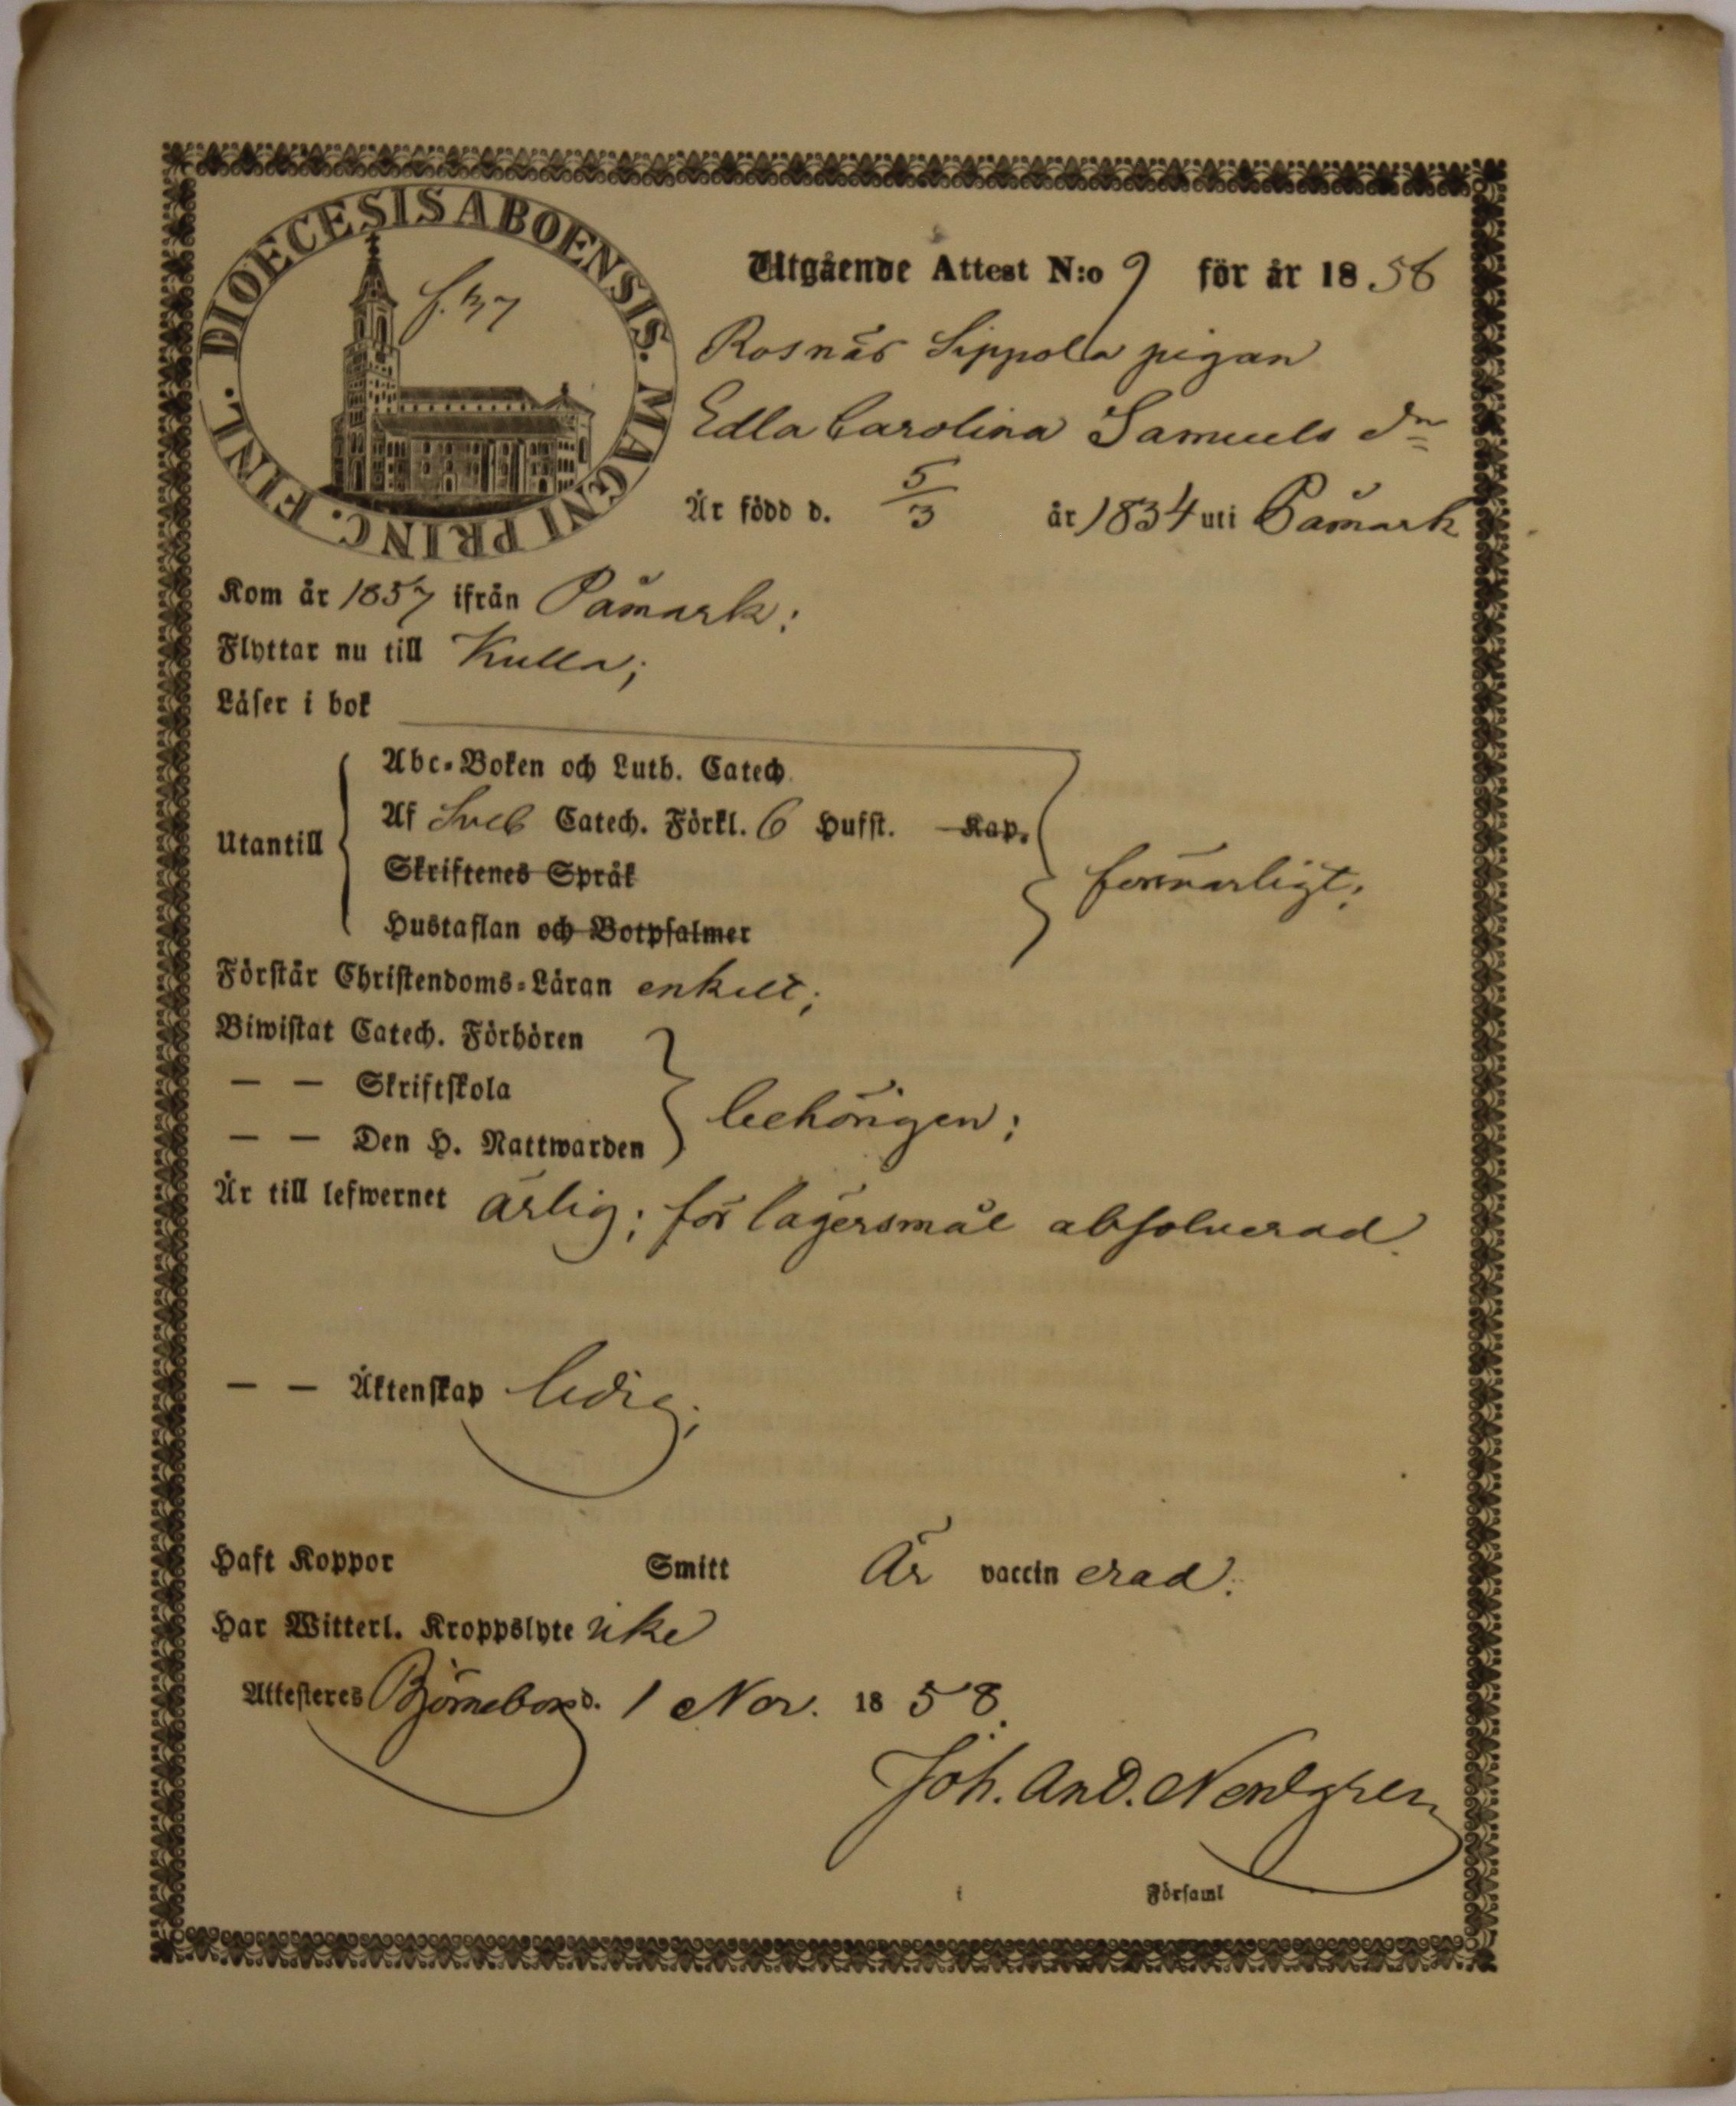 DIOECESIS ABOENSIS. MAGNI PRINC. FINL.
Utgående Attest N:o 9 för år 1858
Rosnäs Sippola pigan
Edla Carolina Samuels dr
Är född d. 5/3 år 1834 uti Påmark
Kom år 1857 ifrån Påmark;
Flyttar nu till Kulla;
Läser i bok
Abc-Boken och Luth. Catech.
Utantill Af Sveb Catech. Förkl. 6 Hufst. Kap. försvarligt;
Skriftenes Språk
Hustaflan och Botpsalmer
Förstår Christendoms-Läran enkelt;
Biwistat Catech. Förhören
— — Skriftskola behörigen;
— — Den H. Nattwarden
Är till lefwernet ärlig; för lägersmål absolverad.
— — Äktenskap ledig;
Haft Koppor Smitt Är vaccin erad.
Har Witterl. Kroppslyte icke
Attesteres Björneborg d. 1 Nov. 1858.
Joh. And.
i Församl